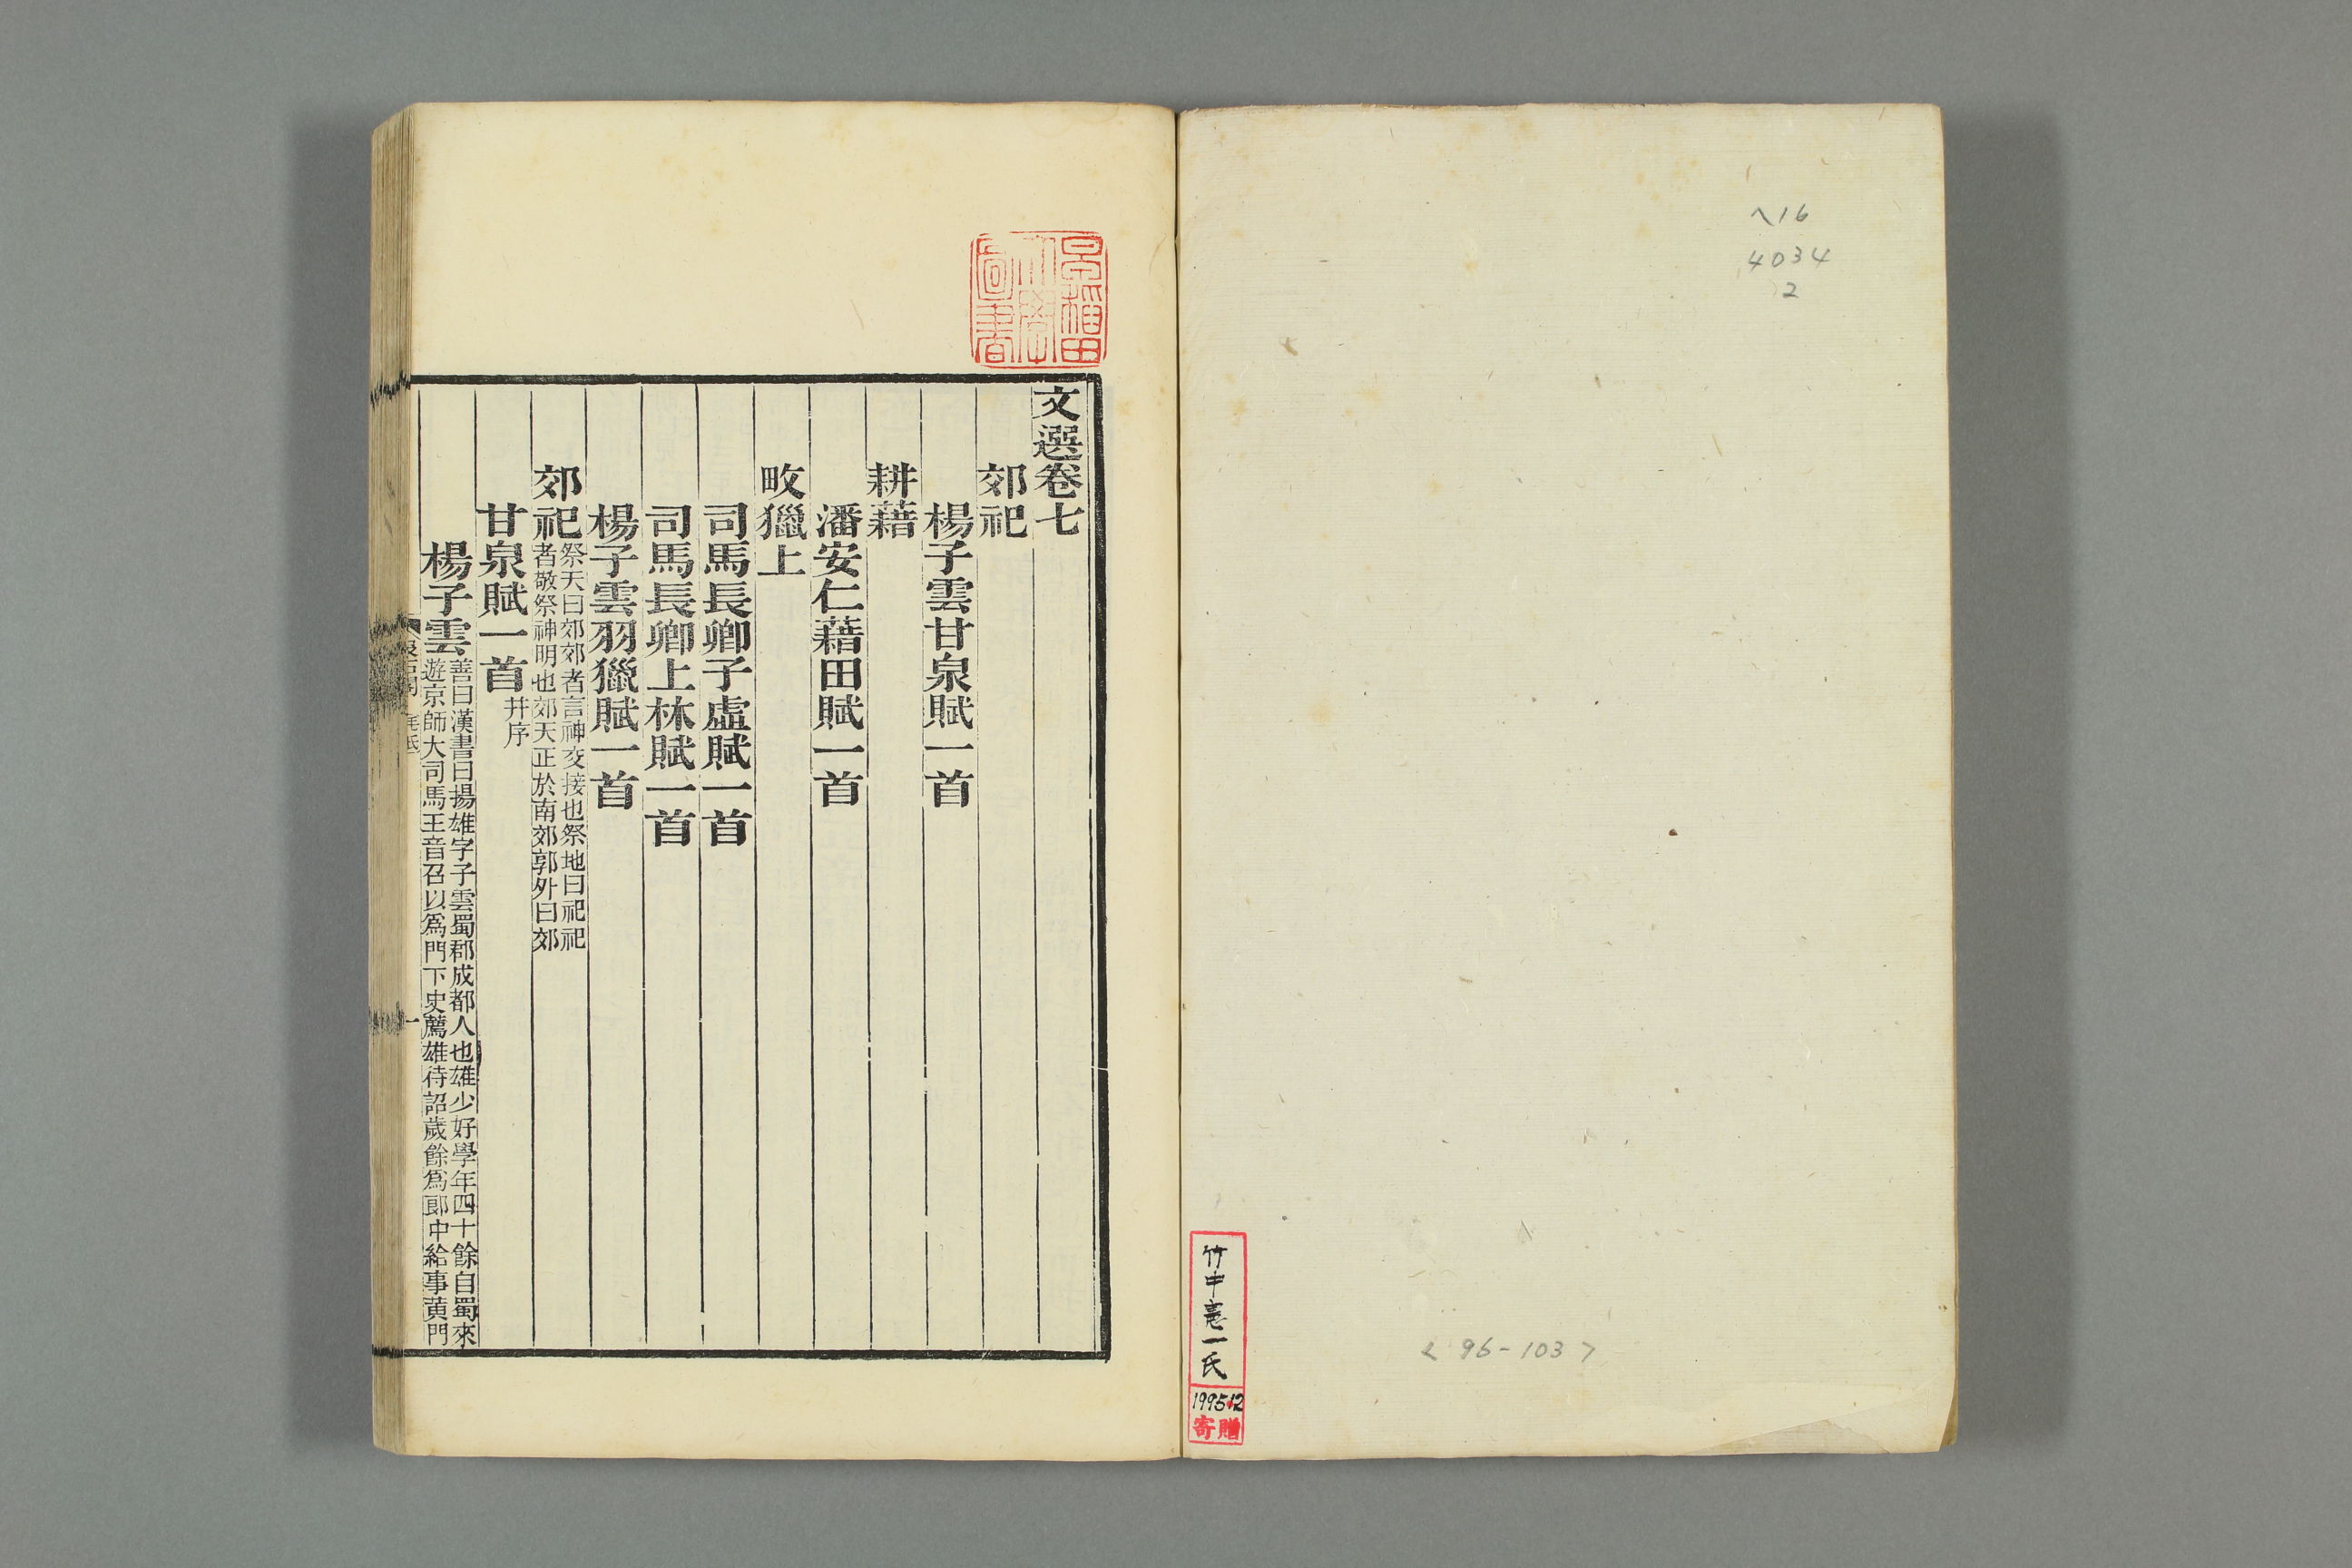 ヘ16
4034
2
竹中憲一氏
1995.12
寄贈
< 96-103 >
早稲田
大學
圖書
文選卷七
郊祀
楊子雲甘泉賦一首
耕藉
潘安仁藉田賦一首
畋獵上
司馬長卿子虛賦一首
司馬長卿上林賦一首
楊子雲羽獵賦一首
郊祀祭天曰郊郊者言神交接也祭地曰祀祀
者敬祭神明也郊天正於南郊郭外曰郊
甘泉賦一首并序
楊子雲善曰漢書曰揚雄字子雲蜀郡成都人也雄少好學年四十餘自蜀來
遊京師大司馬王音召以爲門下史薦雄待詔歲餘爲郎中給事黃門
一